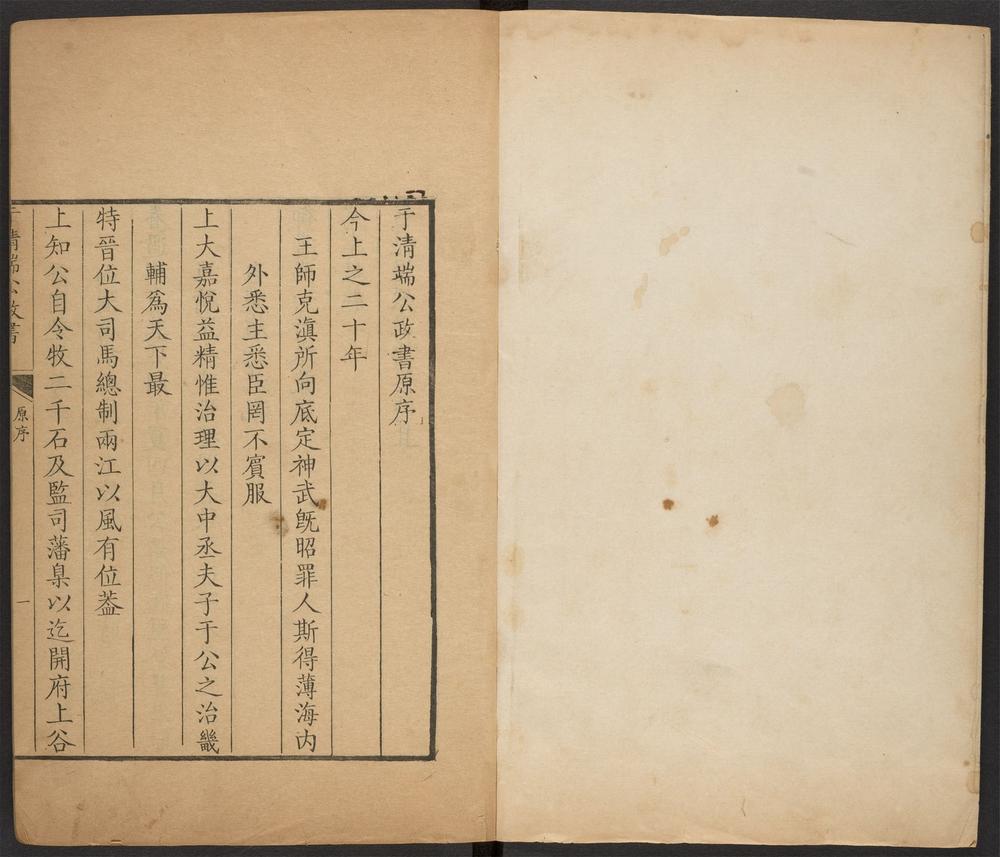 于清端公政書原序
今上之二十年
王師克滇所向底定神武旣昭罪人斯得薄海內
外悉主悉臣罔不賓服
上大嘉悅益精惟治理以大中丞夫子于公之治畿
輔爲天下最
特晉位大司馬總制兩江以風有位葢
上知公自令牧二千石及監司藩臬以迄開府上谷
于清端公政書
原序
一